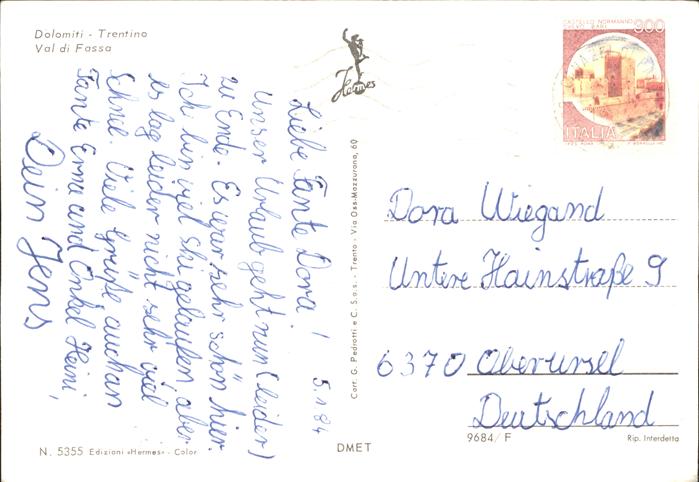 Dolomiti - Trentino
Val di Fassa
Hermes
CASTELLO NORMANNO
SVEVO BARI
300
ITALIA
Liebe Tante Dora!
5.1.84
Unser Urlaub geht nun (leider)
zu Ende. Es war sehr schön hier.
Ich bin viel ski gelaufen, aber
es lag leider nicht sehr viel
Schnee. Viele Grüße auch an
Tante Erna und Onkel Heini,
Dein Jens
Cart. G. Pedrotti e C. S.a.s. - Trento - Via Oss. Mazzurana, 60
Dora Wiegand
Untere Hainstraße 9
6370 Oberursel
Deutschland
N. 5355 Edizioni «Hermes» - Color
DMET
9684/F
Rip. Interdetta